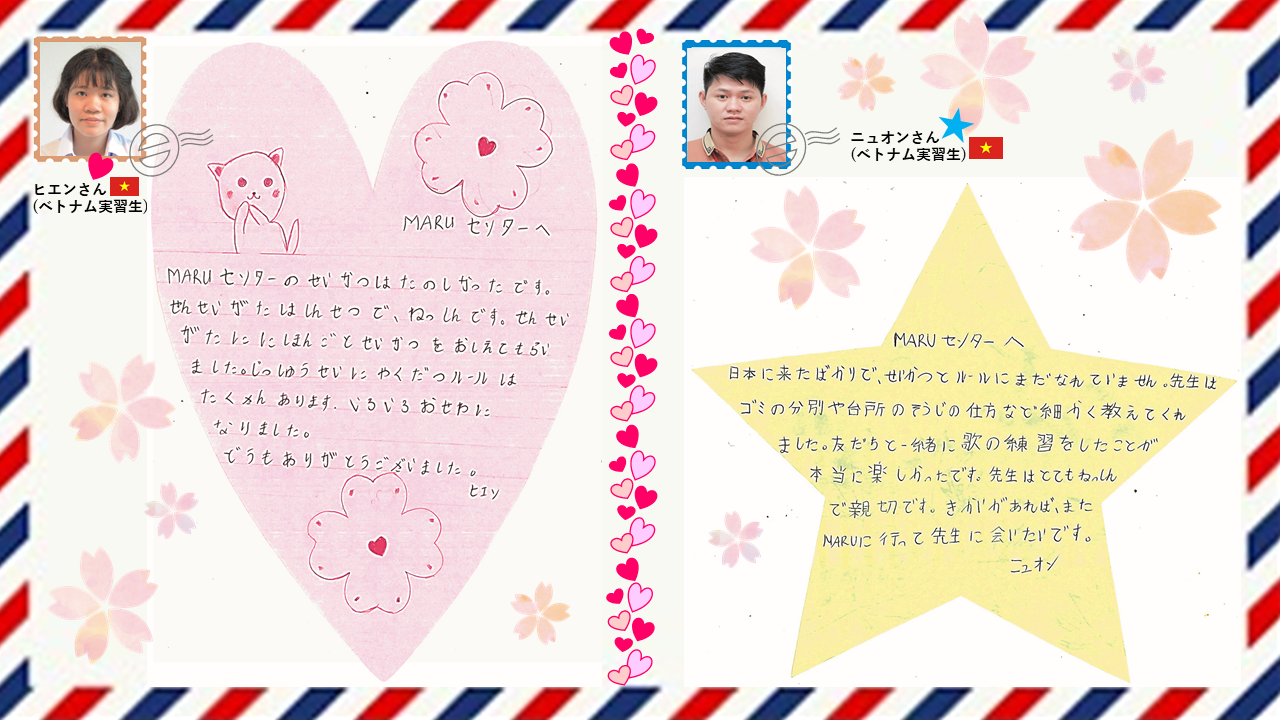 ヒエンさん
(ベトナム実習生)
MARU センターへ
MARU センターの せいかつは たのしかったです。
せんせいがたは しんせつで、ねっしんです。せんせい
がたに にほんごと せいかつを おしえてもらい
ました。じっしゅうせいに やくだつルールは
たくさん あります。いろいろ おせわに
なりました。
どうもありがとうございました。
ヒエン
ニュオンさん
(ベトナム実習生)
MARU センター へ
日本に来たばかりで、せいかつとルールにまだなれていません。先生は
ゴミの分別や台所のそうじの仕方など細かく教えてくれ
ました。友だちと一緒に歌の練習をしたことが
本当に楽しかったです。先生はとてもねっしん
で親切です。きかいがあれば、また
MARUに行って先生に会いたいです。
ニュオン